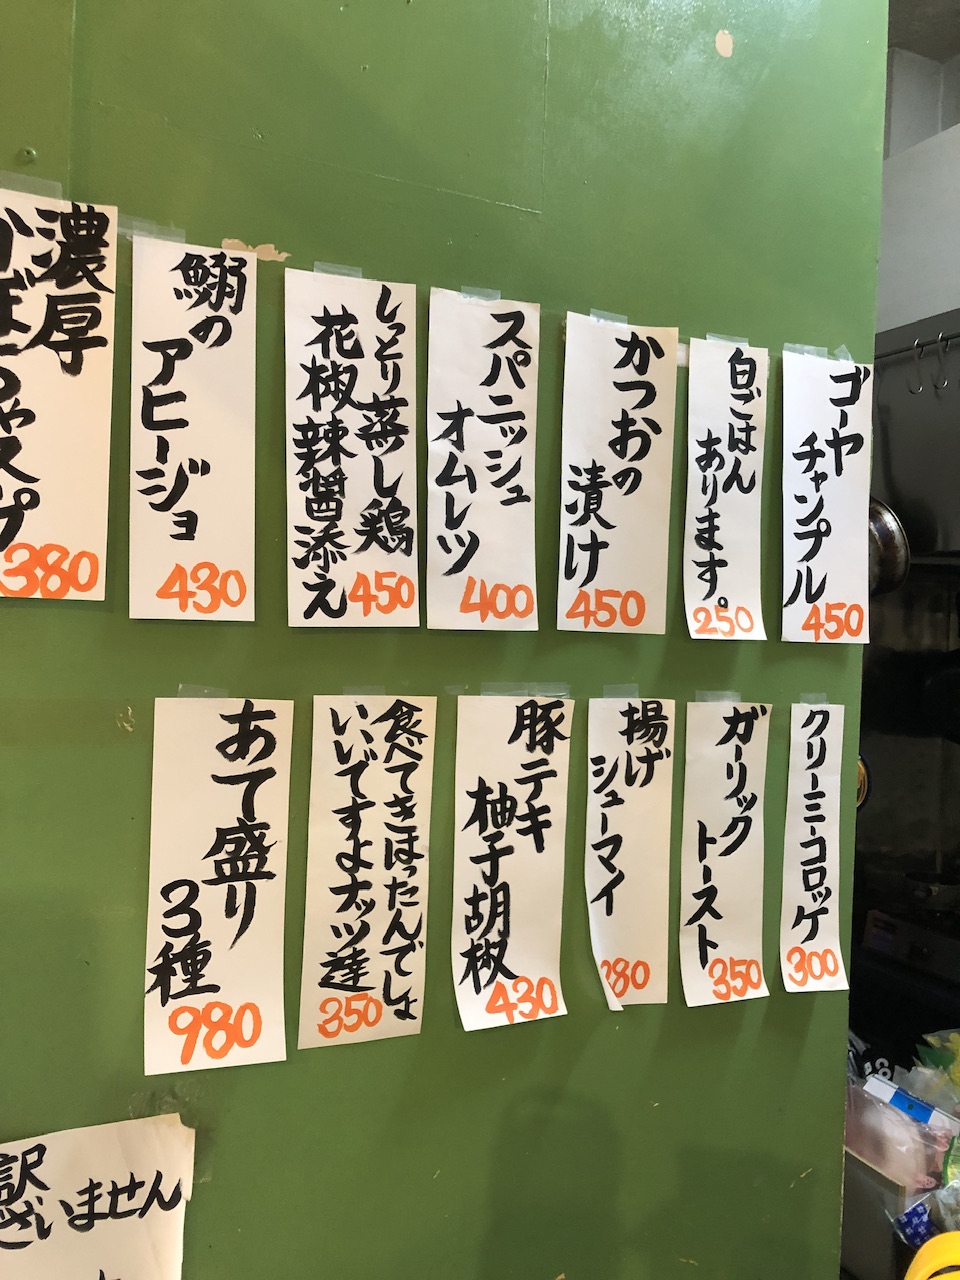 ゴーヤ
チャンプル
450
白ごはん
あります。
250
かつおの
漬け
450
スパニッシュ
オムレツ
400
しっとり蒸し鶏
花椒辣醤添え
450
鰯の
アヒージョ
430
濃厚
かぼちゃスープ
380
クリーミーコロッケ
300
ガーリック
トースト
350
揚げ
シューマイ
豚テキ
柚子胡椒
430
食べてきはったんでしょ
いいですよナッツ達
350
あて盛り
3種
980
訳
ざいません